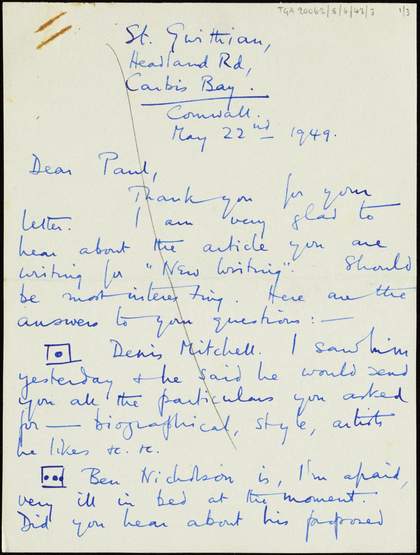 TGA 20062/5/4/42/3 1/3
St. Gwithian,
Headland Rd,
Carbis Bay.
Cornwall.
May 22nd 1949.
Dear Paul,
Thank you for your
letter. I am very glad to
hear about the article you are
writing for "New Writing". Should
be most interesting. Here are the
answers to your questions: —
Denis Mitchell. I saw him
yesterday & he said he would send
you all the particulars you asked
for — biographical, style, artists
he likes &c. &c.
Ben Nicholson is, I'm afraid,
very ill in bed at the moment.
Did you hear about his proposed